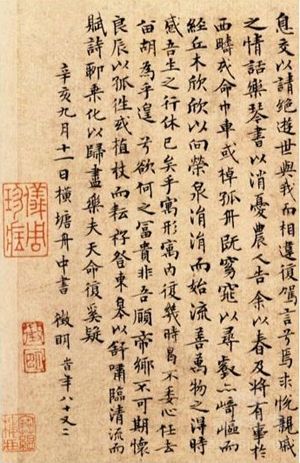 息交以請絕遊世與我而相違復駕言兮焉求悅親戚
之情話樂琴書以消憂農人告余以春及將有事於
西疇或命巾車或棹孤舟既窈窕以尋壑亦崎嶇而
經丘木欣欣以向榮泉涓涓而始流善萬物之得時
感吾生之行休已矣乎寓形寓內復幾時曷不委心任去
留胡為乎遑〻兮欲何之富貴非吾願帝鄉不可期懷
良辰以孤往或植杖而耘耔登東皋以舒嘯臨清流而
賦詩聊乘化以歸盡樂夫天命復奚疑
辛亥九月十一日橫塘舟中書 徵明 旹年八十又二
儀周珍藏